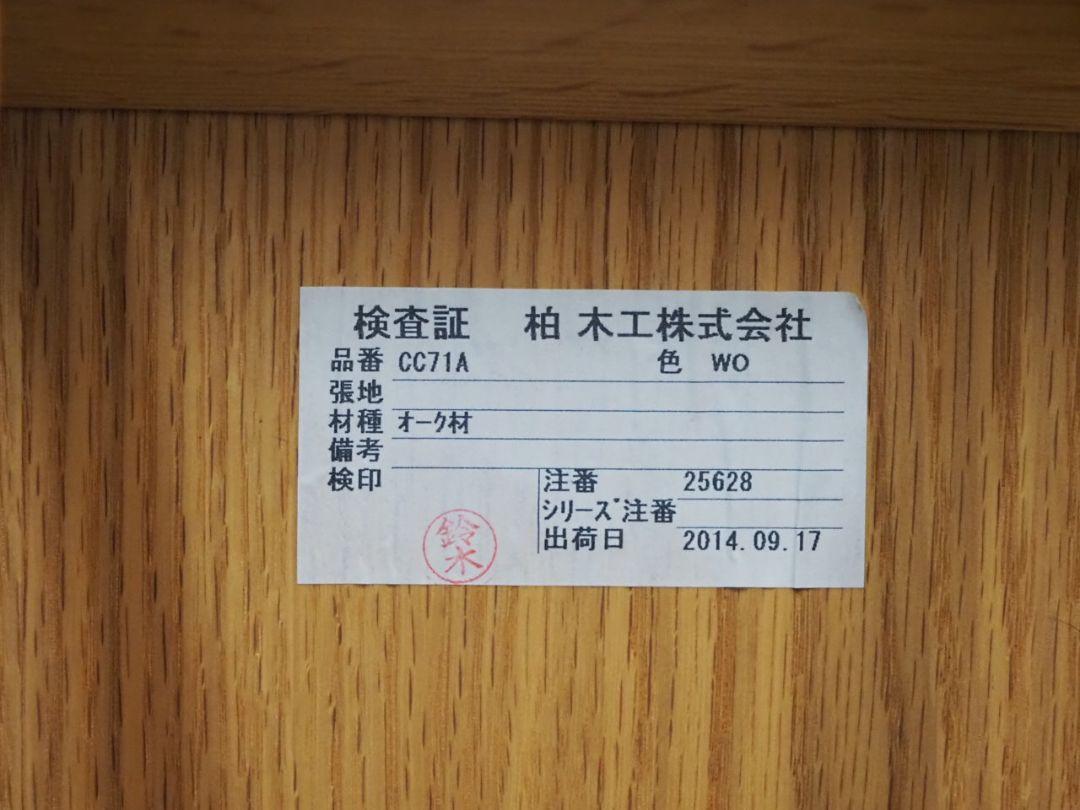 検査証 柏 木工株式会社
品番 CC71A 色 WO
張地
材種 オーク材
備考
検印 注番 25628
シリーズ注番
出荷日 2014.09.17
鈴木